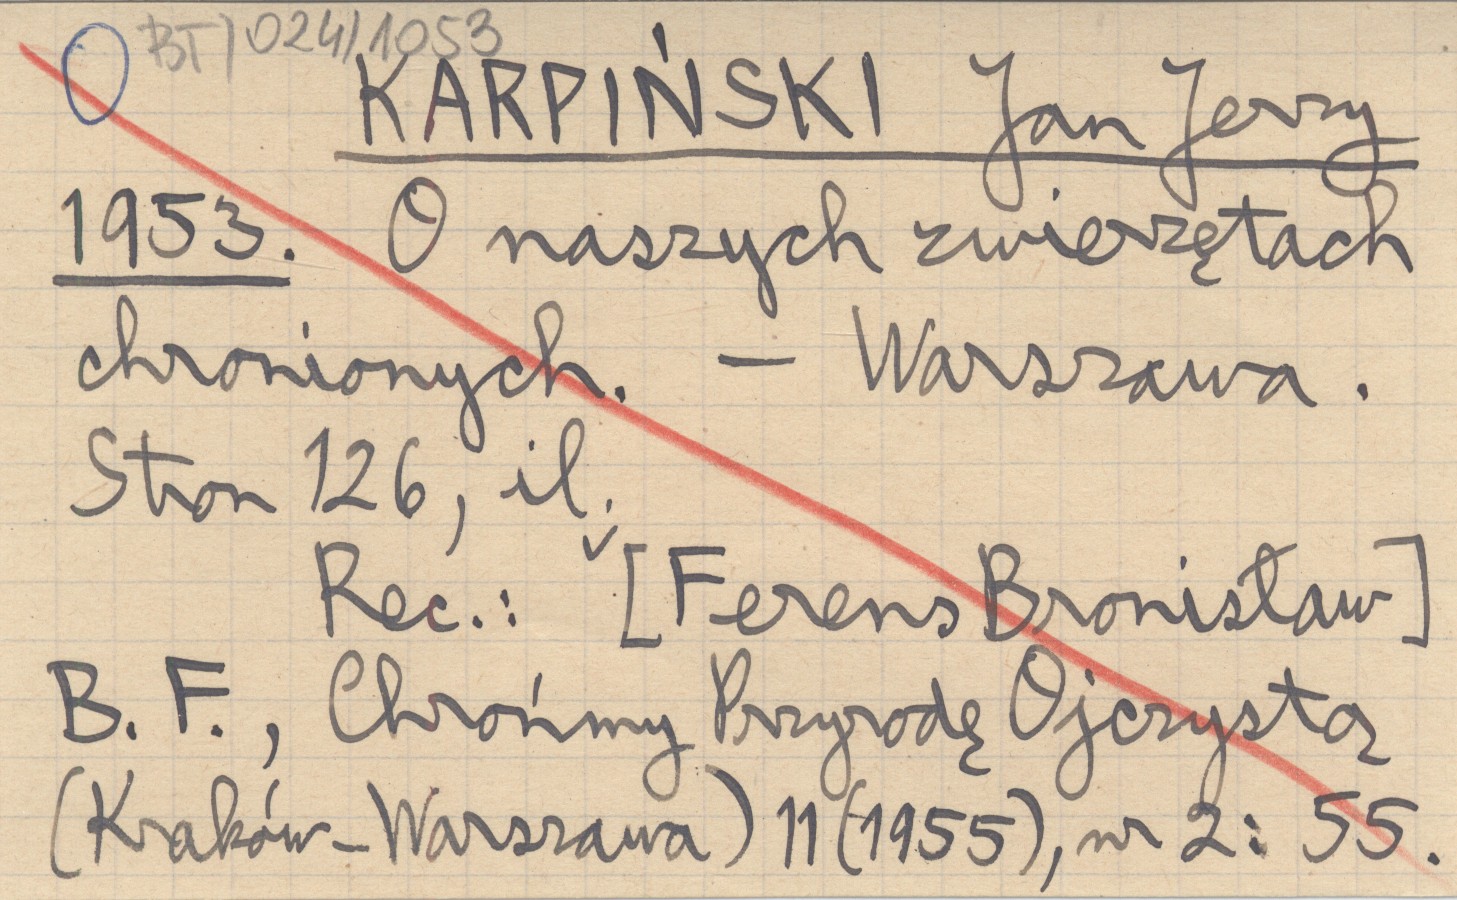 BT/024/1053
KARPIŃSKI Jan Jerzy
1953. O naszych zwierzętach
chronionych. — Warszawa.
Stron 126, il.
Rec.: [Ferens Bronisław]
B. F., Chrońmy Przyrodę Ojczystą
(Kraków-Warszawa) 11 (1955), nr 2: 55.